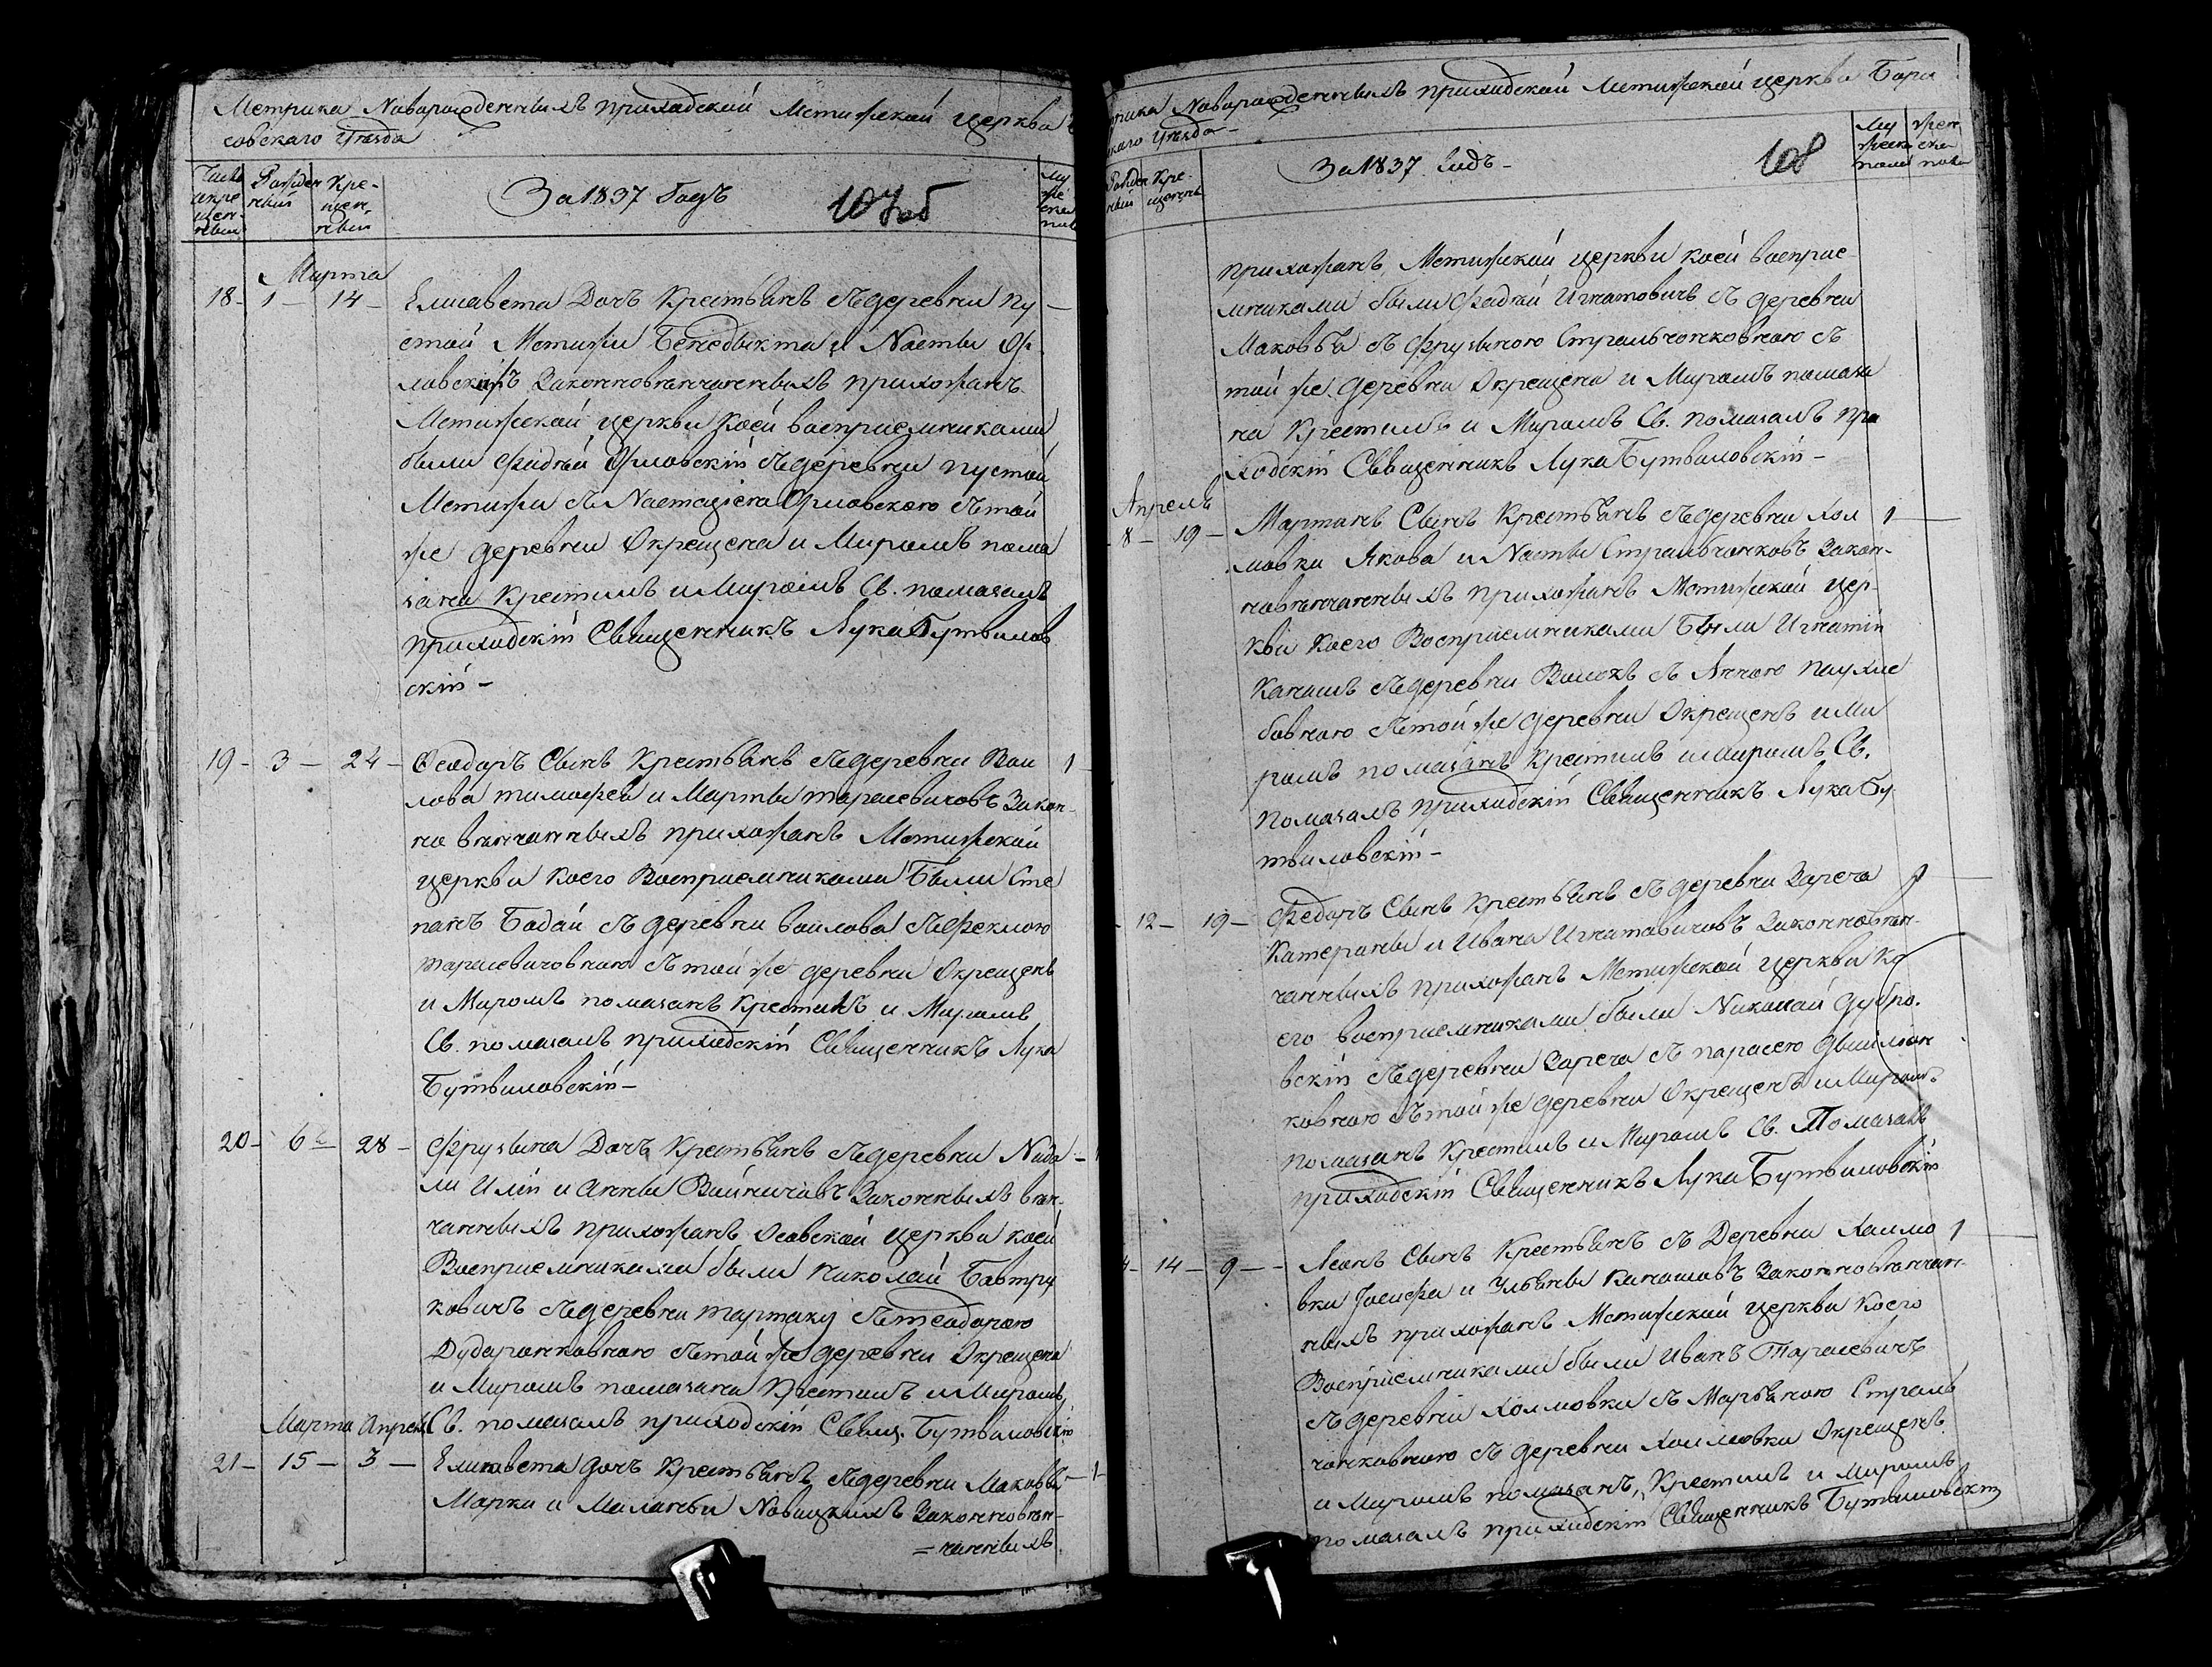 Метрика Новарожденныхъ приходской Метижской церкви
совскаго Уезда
Число окре щен ныхъ
Рожден ныхъ
Кре- щен ныхъ
За 1837 Годъ
107 об
Марта
18 - 1 - 14 - Елисавета Дочь Крестьянъ съ деревни Пу
стой Метижи Бенедыкта и Насты Ор
ловскихъ Законновенчанныхъ прихожанъ
Метижской церкви коей восприемниками
были Фадѣй Орловскій съ деревни Пустой
Метижи съ Настасіею Орловскою съ той
же деревни Окрещена и Миромъ пома
зана Крестилъ и Миромъ Св. помазалъ
приходскій Священникъ Лука Бутвилов
скій -
19 - 3 - 24 - Феодоръ Сынъ Крестьянъ съ деревни Вои
лова Тимофея и Марты Тарасевичовъ Закон-
но венчанныхъ прихожанъ Метижской
церкви коего Восприемниками Были Сте
панъ Бадай съ деревни Воилова съ Феклою
Тарасевичовною съ той же деревни Окрещенъ
и Миромъ помазанъ Крестилъ и Миромъ
Св. помазалъ приходскій Священникъ Лука
Бутвиловскій -
20 - 6 - 28 - Фрузына Дочь Крестьянъ съ деревни Нида
ли Иліи и Анны Войничовъ Законныхъ вен-
чанныхъ прихожанъ Осовской церкви коей
Восприемниками были Николай Бавтру
ковичъ съ деревни Тартаку съ Теодорою
Дударонковною съ той же деревни Окрещена
и Миромъ помазана Крестилъ и Миромъ
Св. помазалъ приходскій Свящ. Бутвиловскій
Марта Апрель
21 - 15 - 3 - Елисавета дочь Крестьянъ съ деревни Маковьѣ
Марка и Маланьи Новицкихъ Законновен-
= чанныхъ
Новарожденныхъ приходской Метижской церкви Бори
скаго Уезда -
Рожден ныхъ
Кре- щенныхъ
За 1837 Годъ -
108
Му жеска полу
Жен ска пола
прихожанъ Метижской церкви коей восприе-
мниками были Фадѣй Игнатовичъ съ деревни
Маковьѣ съ Фрузыною Стральчонковною съ
той же деревни Окрещена и Миромъ помаза
на Крестилъ и Миромъ Св. помазалъ при
ходскій Священникъ Лука Бутвиловскій -
Апрель
8 - 19 - Мартинъ Сынъ Крестьянъ съ деревни Хол 1
мовки Якова и Насты Стральчонковъ Закон-
новенчанныхъ прихожанъ Метижской цер-
кви коего Восприемниками Были Игнатій
Канашъ съ деревни Вилохъ съ Анною
бовною съ той же деревни Окрещенъ и Ми
ромъ помазанъ Крестилъ и Миромъ Св.
помазалъ приходскій Священникъ Лука Бу
твиловскій -
12 - 19 - Федоръ Сынъ Крестьянъ съ деревни Зареча 1
Катерины и Ивана Игнатовичовъ Законновен-
чанныхъ прихожанъ Метижской церкви Ко
его восприемниками были Николай Дубро-
вскій съ деревни Зареча съ Парасею
ковною съ той же деревни Окрещенъ и Миром-
помазанъ Крестилъ и Миромъ Св. Помазалъ
приходскій Священникъ Лука Бутвиловскій
14 - 9 - Леонъ Сынъ Крестьянъ съ Деревни Холмо 1
вки Іосифа и Ульяны Канашовъ Законновенчан-
ныхъ прихожанъ Метижской церкви коего
Восприемниками были Иванъ Тарасевичъ
съ деревни Холмовки съ Марьяною Страль
чонковною съ деревни Холмовки Окрещенъ
и Миромъ помазанъ, Крестилъ и Миромъ
помазалъ приходскій Священникъ Бутвиловскій